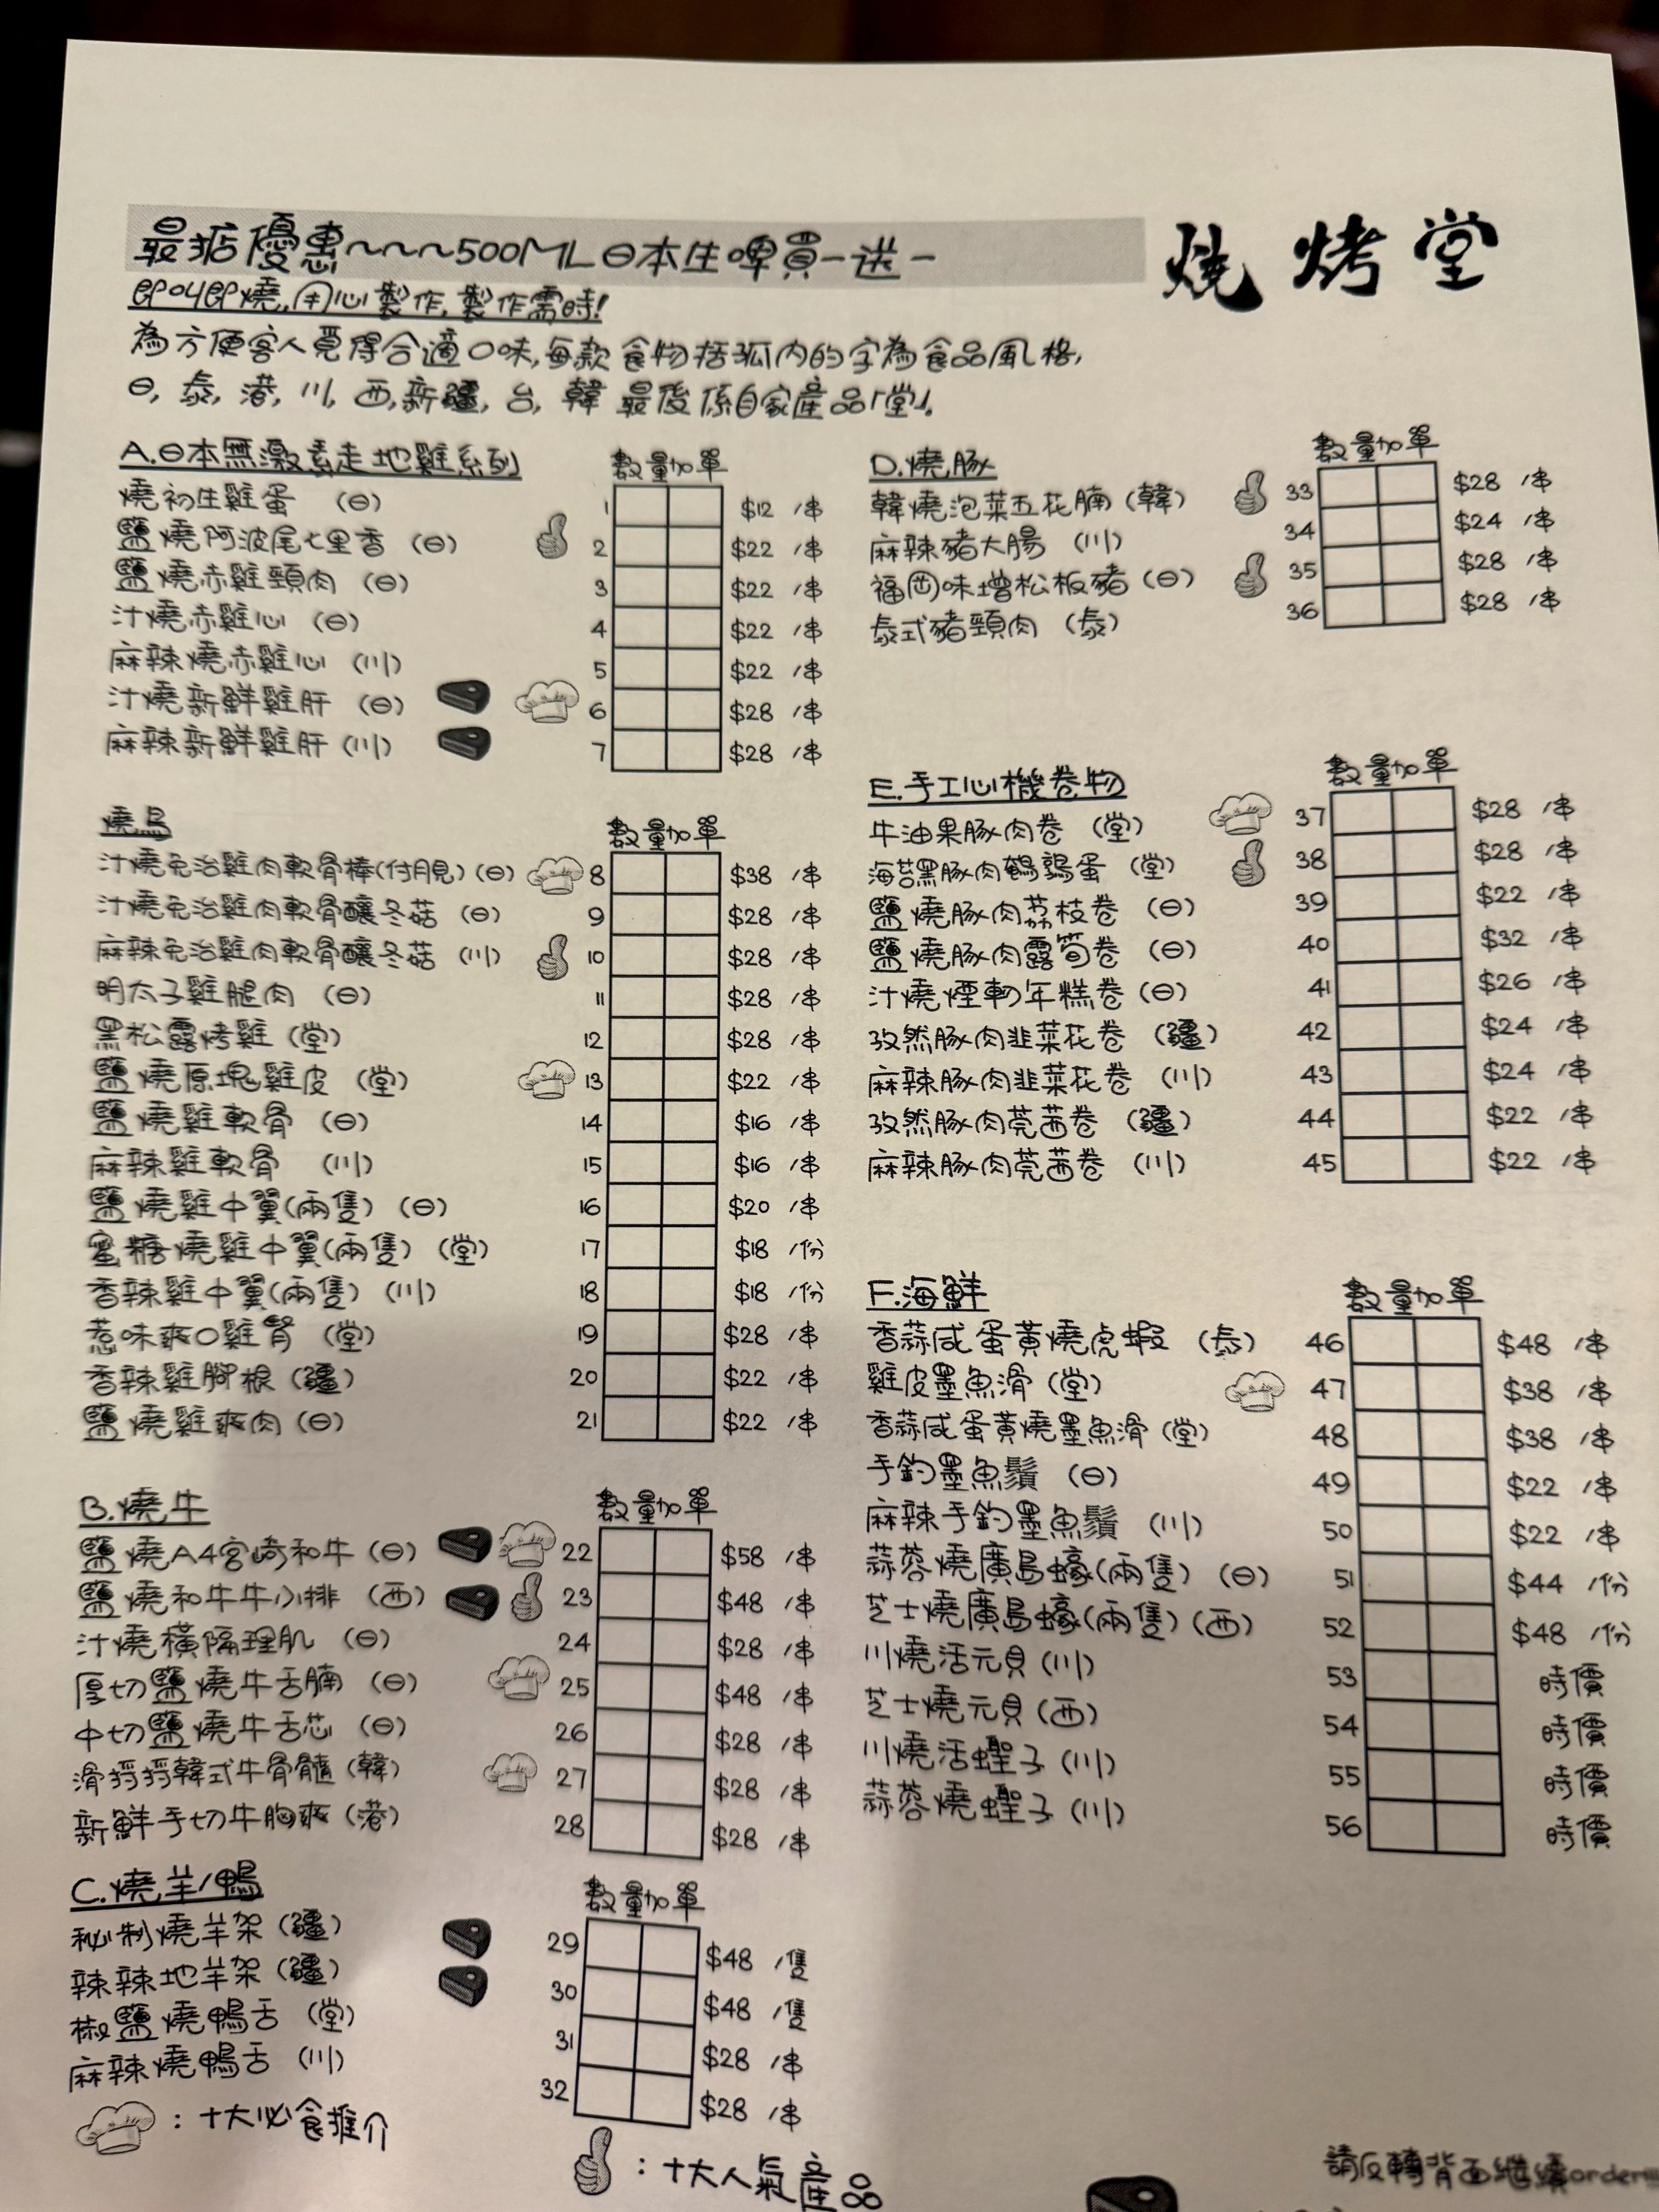 最掂優惠~~~500ML日本生啤買一送一
燒烤堂
即叫即燒,用心製作,製作需時!
為方便客人覓得合適口味,每款食物括弧內的字為食品風格,
日,泰,港,川,西,新疆,台,韓 最後係自家產品「堂」。
A.日本無激素走地雞系列 數量 加單
燒初生雞蛋 (日) 1 $12 /串
鹽燒阿波尾七里香 (日) 2 $22 /串
鹽燒赤雞頸肉 (日) 3 $22 /串
汁燒赤雞心 (日) 4 $22 /串
麻辣燒赤雞心 (川) 5 $22 /串
汁燒新鮮雞肝 (日) 6 $28 /串
麻辣新鮮雞肝 (川) 7 $28 /串
燒鳥 數量 加單
汁燒免治雞肉軟骨棒(付月見) (日) 8 $38 /串
汁燒免治雞肉軟骨釀冬菇 (日) 9 $28 /串
麻辣免治雞肉軟骨釀冬菇 (川) 10 $28 /串
明太子雞腿肉 (日) 11 $28 /串
黑松露烤雞 (堂) 12 $28 /串
鹽燒原塊雞皮 (堂) 13 $22 /串
鹽燒雞軟骨 (日) 14 $16 /串
麻辣雞軟骨 (川) 15 $16 /串
鹽燒雞中翼(兩隻) (日) 16 $20 /串
蜜糖燒雞中翼(兩隻) (堂) 17 $18 /份
香辣雞中翼(兩隻) (川) 18 $18 /份
惹味爽口雞腎 (堂) 19 $28 /串
香辣雞腳根 (疆) 20 $22 /串
鹽燒雞爽肉 (日) 21 $22 /串
B.燒牛 數量 加單
鹽燒A4宮崎和牛 (日) 22 $58 /串
鹽燒和牛牛小排 (西) 23 $48 /串
汁燒橫隔理肌 (日) 24 $28 /串
厚切鹽燒牛舌腩 (日) 25 $48 /串
中切鹽燒牛舌芯 (日) 26 $28 /串
滑捋捋韓式牛骨髓 (韓) 27 $28 /串
新鮮手切牛胸爽 (港) 28 $28 /串
C.燒羊/鴨 數量 加單
秘制燒羊架 (疆) 29 $48 /隻
辣辣地羊架 (疆) 30 $48 /隻
椒鹽燒鴨舌 (堂) 31 $28 /串
麻辣燒鴨舌 (川) 32 $28 /串
:十大必食推介
:十大人氣產品
D.燒豚 數量 加單
韓燒泡菜五花腩 (韓) 33 $28 /串
麻辣豬大腸 (川) 34 $24 /串
福岡味增松板豬 (日) 35 $28 /串
泰式豬頸肉 (泰) 36 $28 /串
E.手工心機卷物 數量 加單
牛油果豚肉卷 (堂) 37 $28 /串
海苔黑豚肉鵪鶉蛋 (堂) 38 $28 /串
鹽燒豚肉荔枝卷 (日) 39 $22 /串
鹽燒豚肉露筍卷 (日) 40 $32 /串
汁燒煙韌年糕卷 (日) 41 $26 /串
孜然豚肉韮菜花卷 (疆) 42 $24 /串
麻辣豚肉韮菜花卷 (川) 43 $24 /串
孜然豚肉莞茜卷 (疆) 44 $22 /串
麻辣豚肉莞茜卷 (川) 45 $22 /串
F.海鮮 數量 加單
香蒜咸蛋黃燒虎蝦 (泰) 46 $48 /串
雞皮墨魚滑 (堂) 47 $38 /串
香蒜咸蛋黃燒墨魚滑 (堂) 48 $38 /串
手釣墨魚鬚 (日) 49 $22 /串
麻辣手釣墨魚鬚 (川) 50 $22 /串
蒜蓉燒廣島蠔(兩隻) (日) 51 $44 /份
芝士燒廣島蠔(兩隻) (西) 52 $48 /份
川燒活元貝 (川) 53 時價
芝士燒元貝 (西) 54 時價
川燒活蟶子 (川) 55 時價
蒜蓉燒蟶子 (川) 56 時價
請反轉背面繼續order